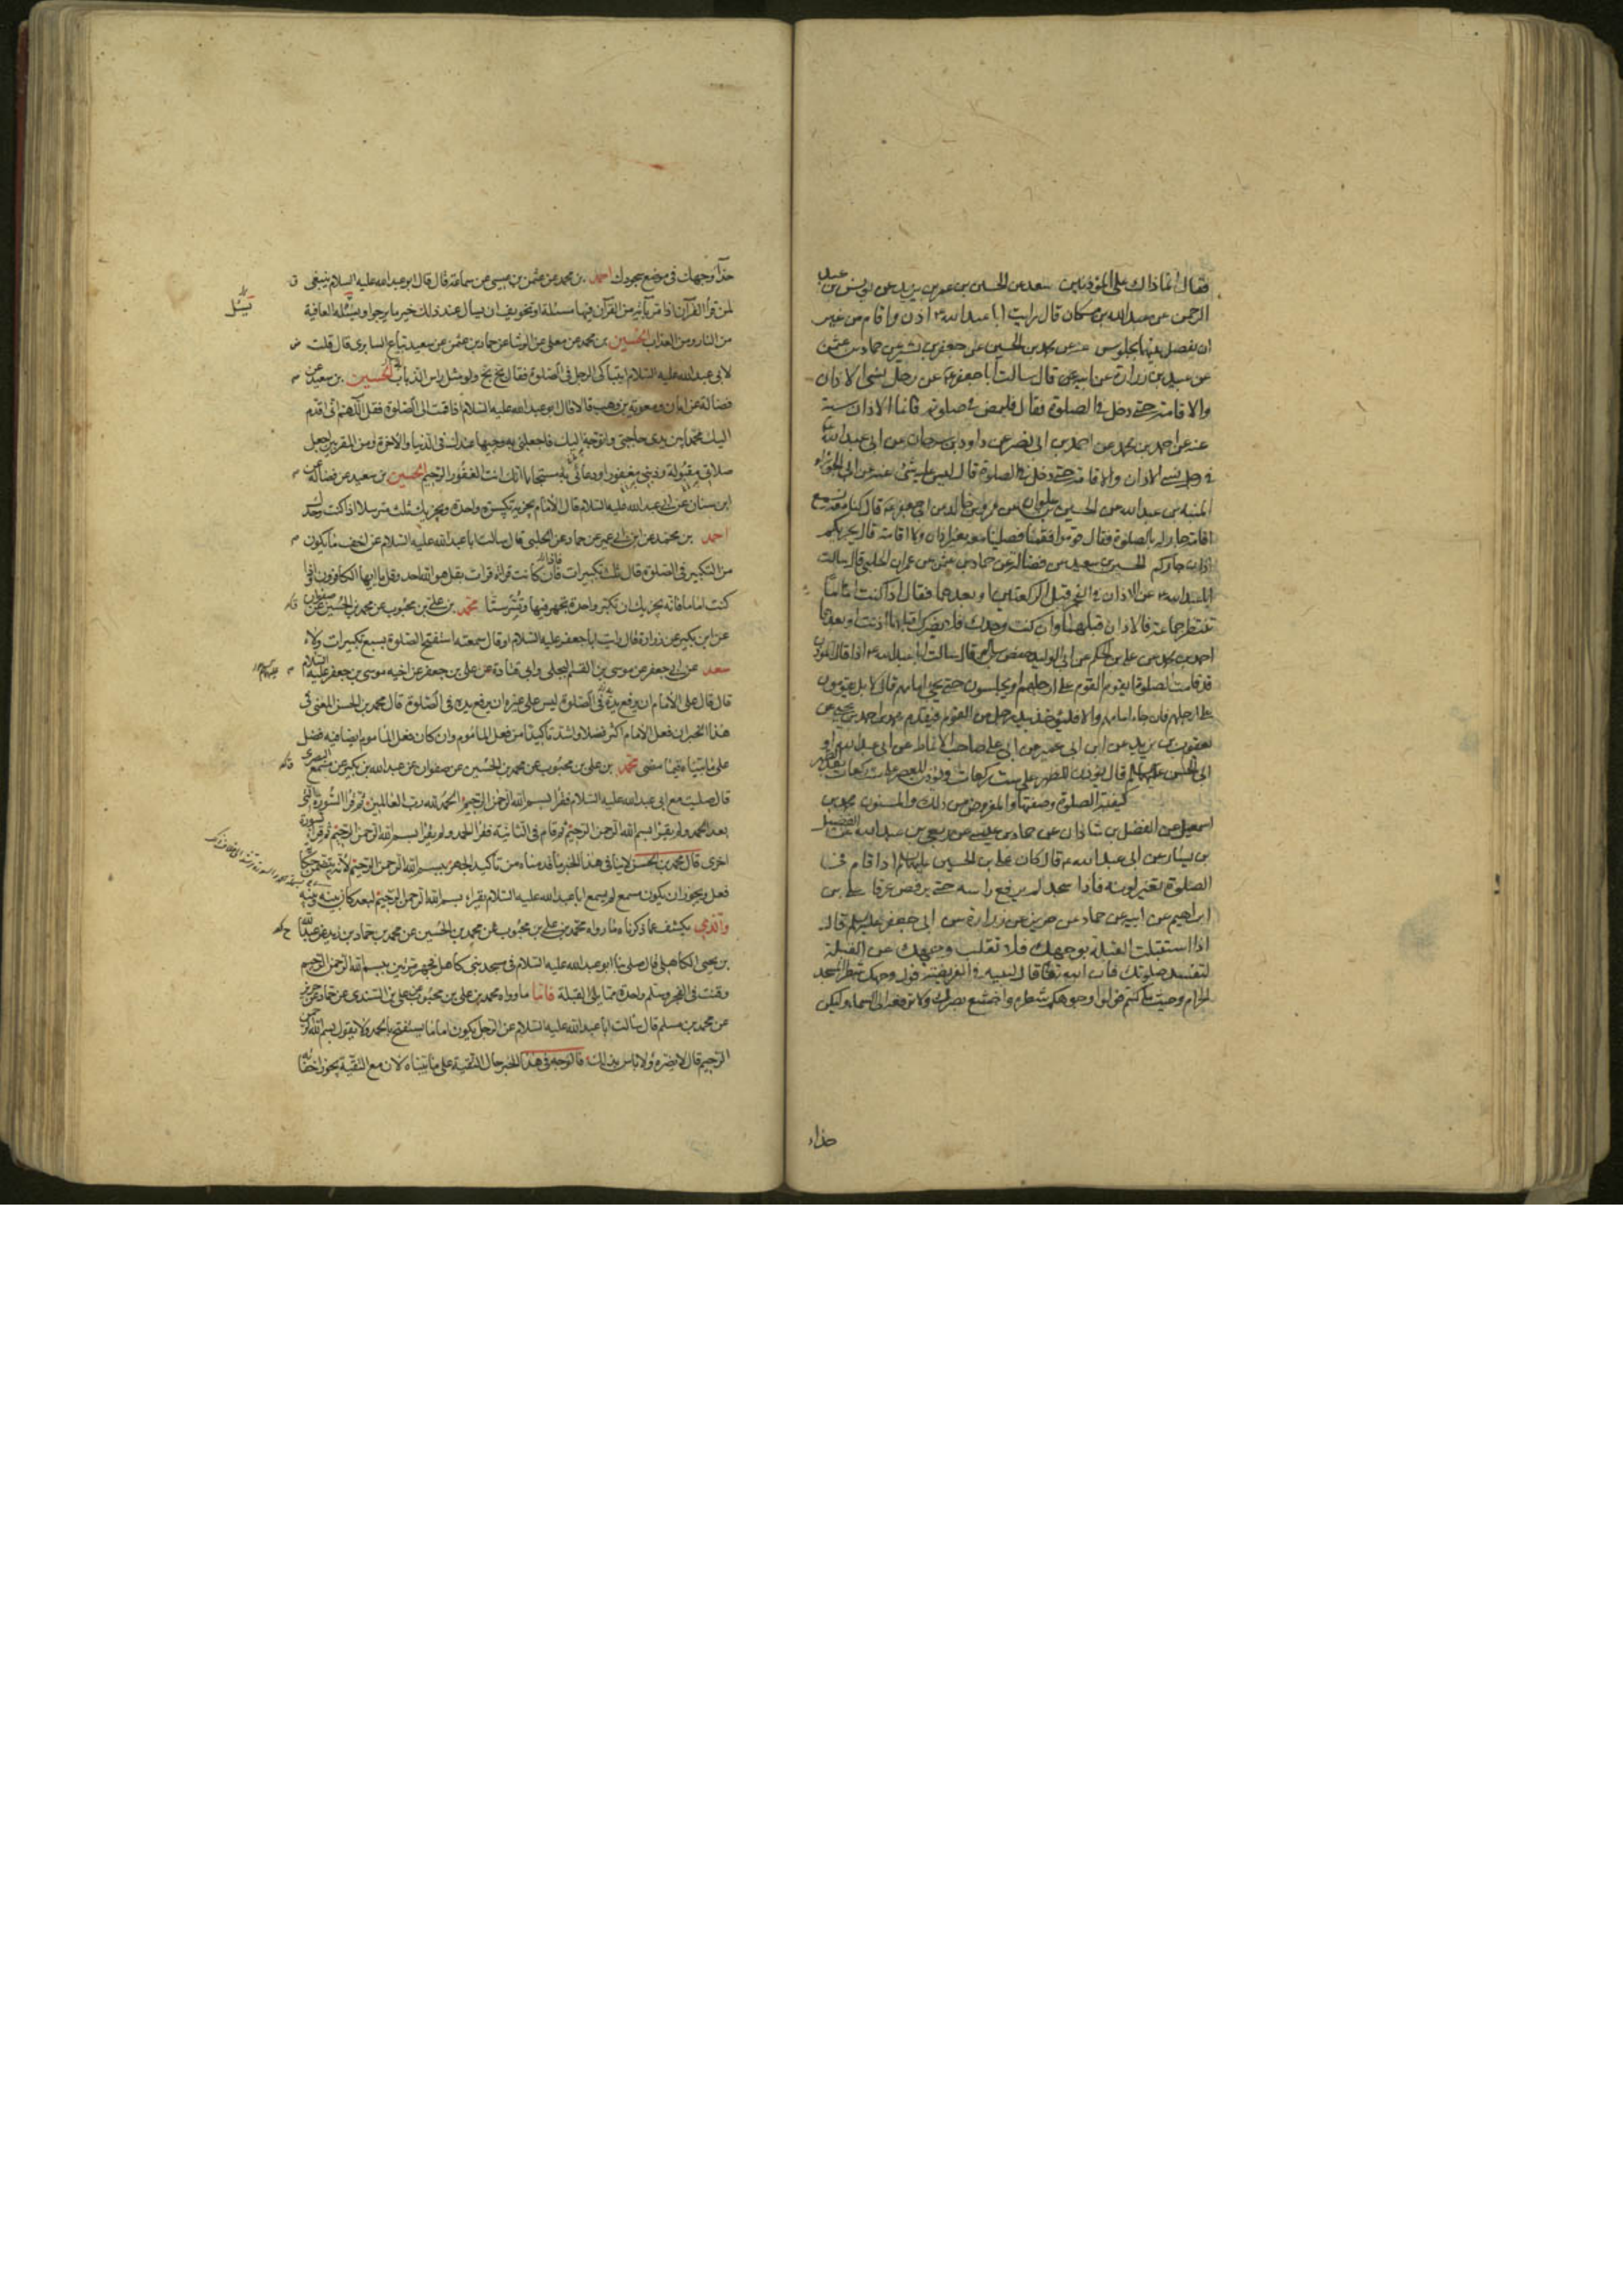 فقال انما ذاك على المؤذنين سعد عن الحسين بن عمر بن يزيد عن يونس بن عبد
الرحمن عن عبد الله بن مسكان قال رايت ابا عبد الله ع اذن واقام من غير
ان يفصل بينهما بجلوس عنه عن محمد بن الحسين عن جعفر بن بشير عن حماد بن عثمن
عن عبيد بن زرارة عن ابيه عن قال سالت ابا جعفر ع عن رجل نسى الاذان
والاقامة حتى دخل في الصلوة فقال فليمض في صلوته فانما الاذان سنة
عنه عن احمد بن محمد عن احمد بن ابى نصر عن داود بن سرحان عن ابى عبد الله ع
في رجل نسى الاذان والاقامة حتى دخل في الصلوة قال ليس عليه شئ عنه عن ابى الجوزاء
المنبه بن عبد الله عن الحسين بن علوان عن عمرو بن خالد عن ابى جعفر ع قال كنا معه فسمع
اقامة جار له بالصلوة فقال قوموا فقمنا فصلينا معه بغير اذان ولا اقامة قال يجزيكم
اذان جاركم الحسين بن سعيد عن فضالة عن حماد بن عثمن عن عمران الحلبى قال سالت
ابا عبد الله ع عن الاذان في الفجر قبل الركعتين او بعدهما فقال اذا كنت اماما
تنتظر جماعة فالاذان قبلهما وان كنت وحدك فلا يضرك اقبلهما اذنت او بعدهما
احمد بن محمد عن على بن الحكم عن ابى الوليد حفص بن سالم قال سالت ابا عبد الله ع اذا قال المؤذن
قد قامت الصلوة ايقوم القوم على ارجلهم او يجلسون حتى يجئ امامهم قال لا بل يقومون
على ارجلهم فان جاء امامهم والا فليؤخذ بيد رجل من القوم فيقدم محمد بن احمد بن يحيى عن
يعقوب بن يزيد عن ابن ابى عمير عن ابى على صاحب الانماط عن ابى عبد الله او
ابى الحسن عليهما السلم قال يؤذن للظهر على ست ركعات ويؤذن للعصر على ست ركعات بعد الظهر
كيفية الصلوة وصفتها والمفروض من ذلك والمسنون محمد بن
اسمعيل عن الفضل بن شاذان عن حماد بن عيسى عن ربعى بن عبد الله عن الفضيل
بن يسار عن ابى عبد الله ع قال كان على بن الحسين عليهما السلم اذا قام في
الصلوة تغير لونه فاذا سجد لم يرفع راسه حتى يرفض عرقا على بن
ابراهيم عن ابيه عن حماد عن حريز عن زرارة عن ابى جعفر عليه السلم قال
اذا استقبلت القبلة بوجهك فلا تقلب وجهك عن القبلة
لتفسد صلوتك فان الله تعالى قال لنبيه في الفريضة فول وجهك شطر المسجد
الحرام وحيث ما كنتم فولوا وجوهكم شطره واخشع ببصرك ولا ترفعه الى السماء وليكن
حذاء
حذاء وجهك في موضع سجودك احمد بن محمد عن عثمن بن عيسى عن سماعة قال قال ابو عبد الله عليه السلام ينبغى
لمن قرأ القرآن اذا مر بآية من القرآن فيها مسئلة او تخويف ان يسأل عند ذلك خير ما يرجوا ويسئله العافية
يسئل
من النار ومن العذاب الحسين بن محمد عن معلى عن الوشا عن حماد بن عثمن عن سعيد بياع السابرى قال قلت
لابى عبد الله عليه السلام ايتباكى الرجل في الصلوة فقال بخ بخ ولو مثل راس الذباب الحسين بن سعيد عن
فضالة عن ابان ومعوية بن وهب قالا قال ابو عبد الله عليه السلام اذا قمت الى الصلوة فقل اللهم انى اقدم
اليك محمدا بين يدى حاجتى واتوجه به اليك فاجعلنى به وجيها عندك في الدنيا والآخرة ومن المقربين اجعل
صلاتى به مقبولة وذنبى به مغفورا ودعائى به مستجابا انك انت الغفور الرحيم الحسين بن سعيد عن فضالة عن
ابن سنان عن ابى عبد الله عليه السلام قال الامام يجزيه تكبيرة واحدة ويجزيك ثلث مترسلا اذا كنت وحدك
احمد بن محمد عن ابن ابى عمير عن حماد عن الحلبى قال سالت ابا عبد الله عليه السلام عن اخف ما يكون
من التكبير في الصلوة قال ثلث تكبيرات فان كانت قرائة قرات بقل هو الله احد وقل يا ايها الكافرون واذا
كنت اماما فانه يجزيك ان تكبر واحدة تجهر فيها وتسر ستا محمد بن على بن محبوب عن محمد بن الحسين عن صفوان
عن ابن بكير عن زرارة قال رايت ابا جعفر عليه السلام او قال سمعته استفتح الصلوة بسبع تكبيرات ولاء
سعد عن ابى جعفر عن موسى بن القسم البجلى وابى قتادة عن على بن جعفر عن اخيه موسى بن جعفر عليه السلام
قال قال على الامام ان يرفع يده في الصلوة ليس على غيره ان يرفع يده في الصلوة قال محمد بن الحسن المعنى في
هذا الخبر ان فعل الامام اكثر فضلا واشد تاكيدا من فعل الماموم وان كان فعل الماموم ايضا فيه فضل
على ما بيناه فيما مضى محمد بن على بن محبوب عن محمد بن الحسين عن صفوان عن عبد الله بن بكير عن مسمع البصرى
قال صليت مع ابى عبد الله عليه السلام فقرا بسم الله الرحمن الرحيم الحمد لله رب العالمين ثم قرا السورة التى
بعد الحمد ولم يقرا بسم الله الرحمن الرحيم ثم قام في الثانية فقرا الحمد ولم يقرا بسم الله الرحمن الرحيم ثم قرا بسورة
اخرى قال محمد بن الحسن لا ينافى هذا الخبر ما قدمناه من تاكيد الجهر ببسم الله الرحمن الرحيم لانه يتضمن حكاية
فعل ويجوز ان يكون مسمع لم يسمع ابا عبد الله عليه السلام يقرا بسم الله الرحمن الرحيم لبعد كان بينه وبينه
والذى يكشف عما ذكرناه ما رواه محمد بن على بن محبوب عن محمد بن الحسين عن محمد بن حماد بن زيد عن عبد الله
بن يحيى الكاهلى قال صلى بنا ابو عبد الله عليه السلام في مسجد بنى كاهل فجهر مرتين ببسم الله الرحمن الرحيم
وقنت في الفجر وسلم واحدة مما يلى القبلة فاما ما رواه محمد بن على بن محبوب عن على بن السندى عن حماد عن حريز
عن محمد بن مسلم قال سالت ابا عبد الله عليه السلام عن الرجل يكون اماما يستفتح بالحمد ولا يقول بسم الله الرحمن
الرحيم قال لا يضره ولا باس بذلك فالوجه في هذا الخبر حال التقية على ما بيناه لان مع التقية يجوز اخفا